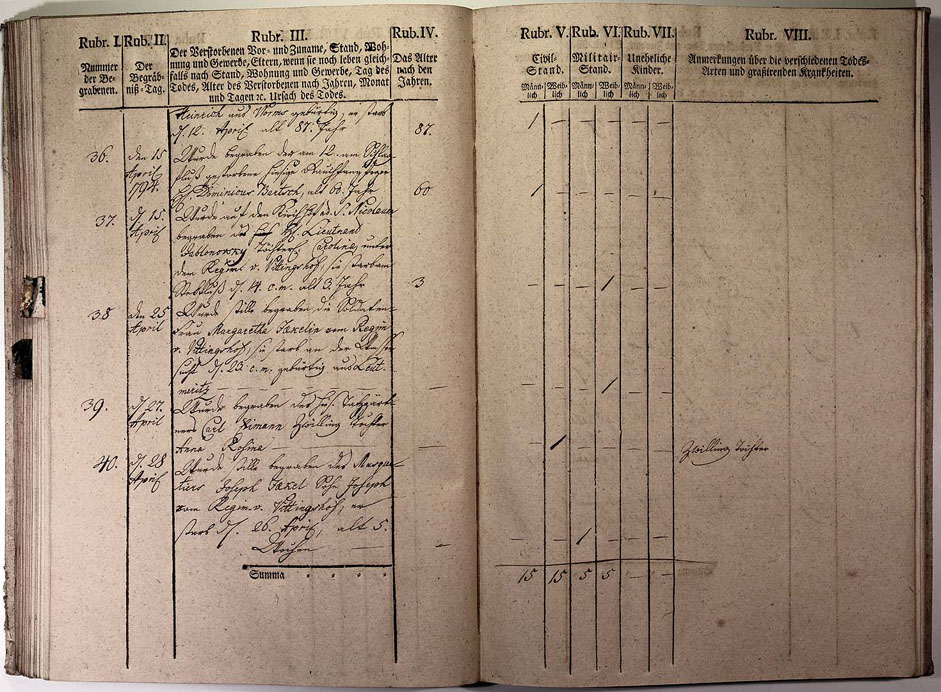 Rubr. I.
Nummer
der Be-
grabenen.
Rub. II.
Der
Begräb-
niß-Tag.
Rubr. III.
Der Verstorbenen Vor- und Zuname, Stand, Woh-
nung und Gewerbe, Eltern, wenn sie noch leben gleich-
falls nach Stand, Wohnung und Gewerbe, Tag des
Todes, Alter des Verstorbenen nach Jahren, Monat
und Tagen ꝛc. Ursach des Todes.
Rub. IV.
Das Alter
nach den
Jahren.
Heinrich aus Worms gebürtig, er starb
d. 12. April alt 87. Jahr 87.
36. den 15 April 1794.
Wurde begraben der am 12. am Schlag-
fluß gestorbene hiesige
H. Dominicus Bartsch, alt 60. Jahr 60
37. d. 15. April
Wurde auf den Kirchhof ad S. Nicolaum
begraben des H. Lieutnand
Jablonowsky Töchterl. Carolina, unter
dem Regim. v. Vittingshof, sie starb am
d. 14. c. m. alt 3. Jahr 3
38 den 25 April
Wurde stille begraben die Soldaten-
frau Margaretha Jäxelin vom Regim
v. Vittingshof, sie starb an der Wasser-
sucht d. 23. c. m. gebürtig aus Leut-
meritz
39. d. 27. April
Wurde begraben des
Carl Zwilling Tochter
Anna Rosina
40. d. 28 April
Wurde stille begraben des Musque-
tiers Joseph Jäxel Sohn Joseph
vom Regim v. Vittingshof, er
starb d. 26. April, alt 5.
Wochen
Summa
Rubr. V.
Civil-
Stand.
Männ-
lich
Weib-
lich
Rub. VI.
Militair-
Stand.
Männ-
lich
Weib-
lich
Rub. VII.
Uneheliche
Kinder.
Männ-
lich
Weib-
lich
Rubr. VIII.
Anmerkungen über die verschiedenen Todes-
Arten und graßirenden Krankheiten.
1 – – – – –
1 – – – – –
– – – 1 – –
– – – 1 – –
– 1 – – – – Zwilling Tochter
– – 1 – – –
15 15 5 5 – –